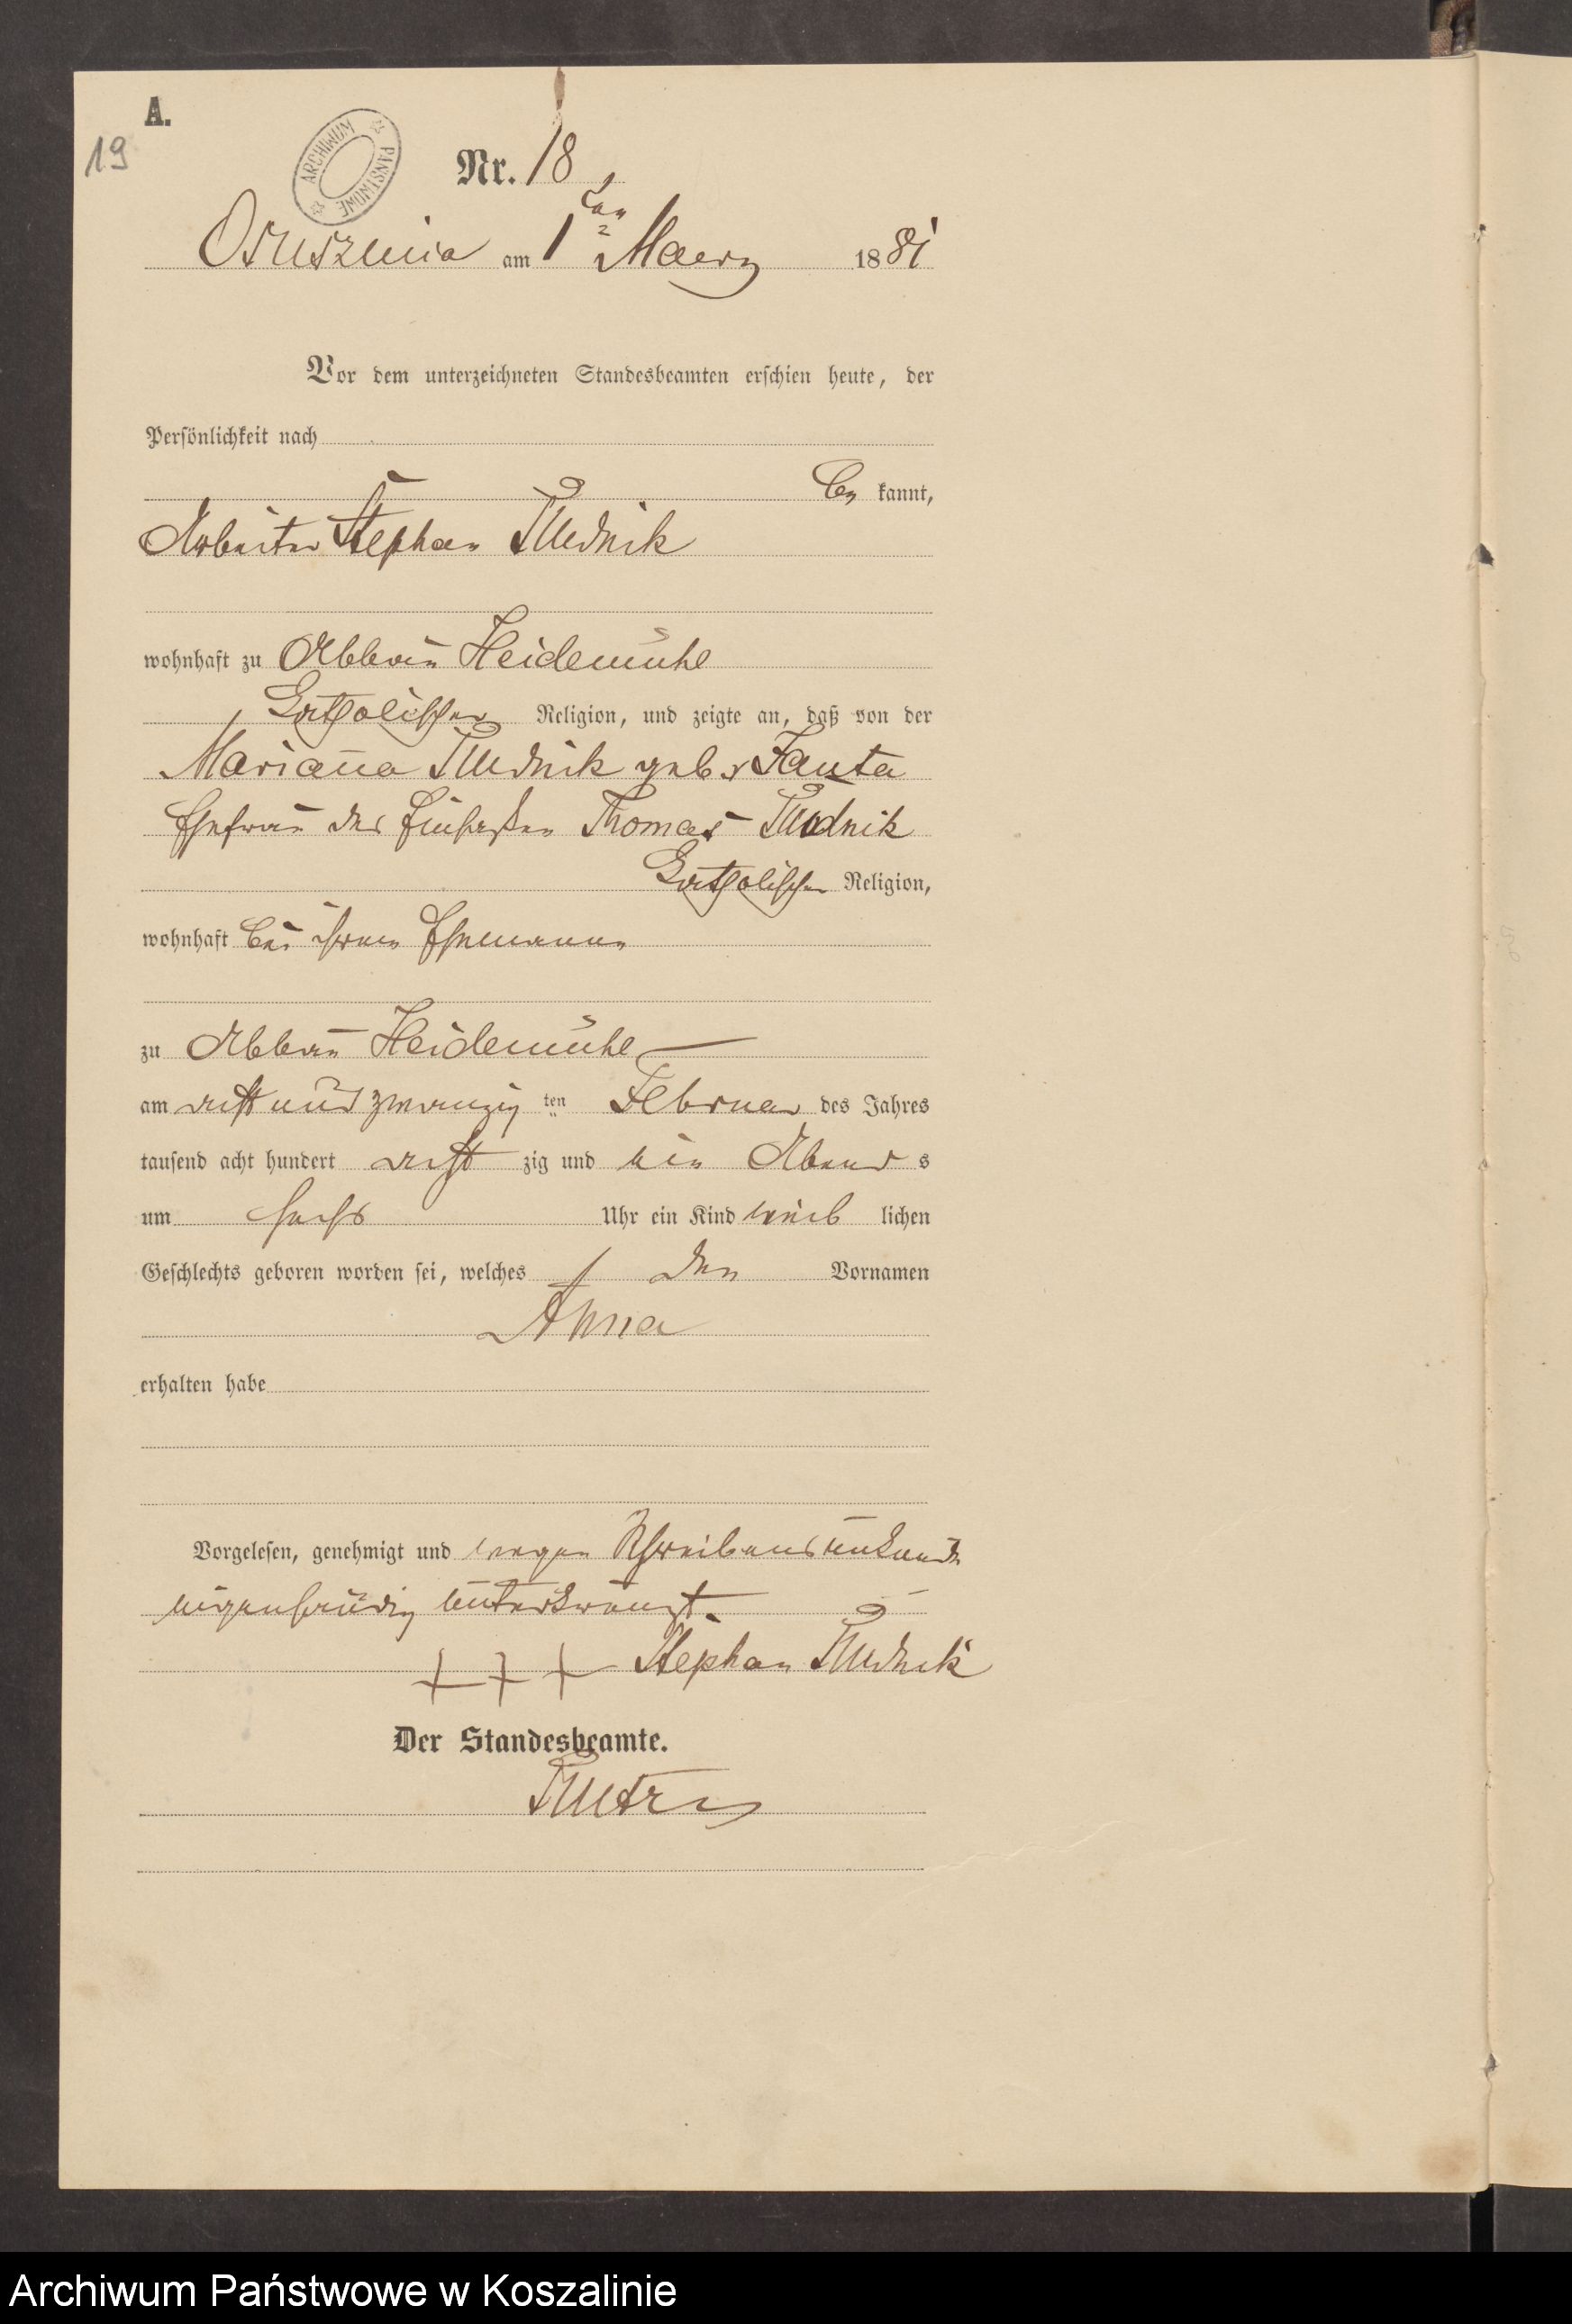 A.
19
ARCHIWUM PAŃSTWOWE
Nr. 18
Osusznica am 1ten Maerz 1881
Vor dem unterzeichneten Standesbeamten erschien heute, der
Persönlichkeit nach
be kannt,
Arbeiter Stephan Rudnik
wohnhaft zu Abbau Heidemühl
katholischer Religion, und zeigte an, daß von der
Marianna Rudnik geb.
Ehefrau des Einsaßen Thomas Rudnik
katholischer Religion,
wohnhaft bei ihrem Ehemanne
zu Abbau Heidemühl
am acht und zwanzig ten Februar des Jahres
tausend acht hundert acht zig und ein Abend s
um sechs Uhr ein Kind weib lichen
Geschlechts geboren worden sei, welches den Vornamen
Anna
erhalten habe
Vorgelesen, genehmigt und wegen Schreibensunkunde
eigenhändig unterkreuzt.
+ + + Stephan Rudnik
Der Standesbeamte.
Archiwum Państwowe w Koszalinie